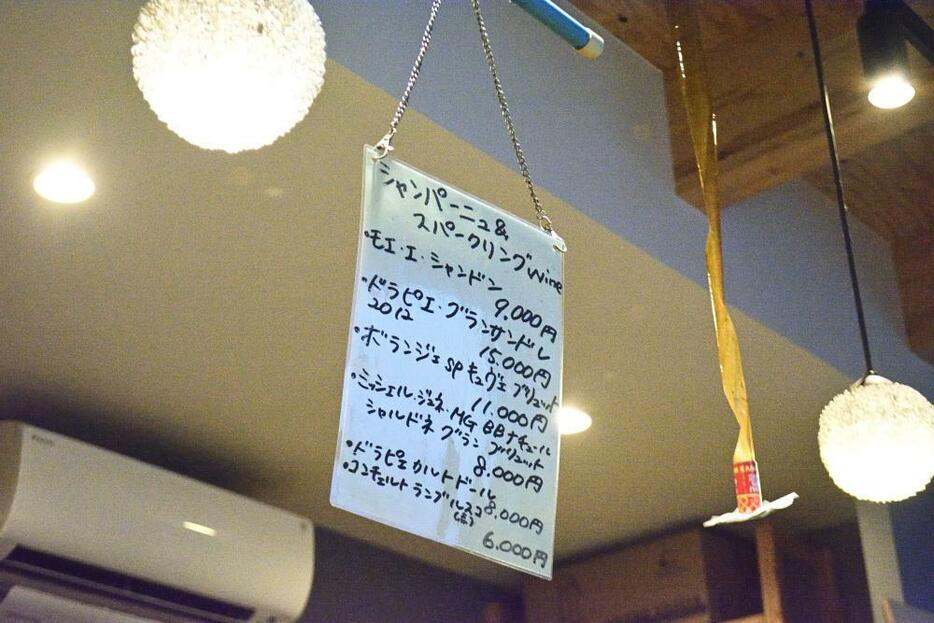 シャンパーニュ&
スパークリングwine
・モエ・エ・シャンドン
9,000円
・ドラピエ・グランサンドレ
2012
15,000円
・ボランジェ SP キュヴェ ブリュット
11,000円
・ミッシェル・ジュネ・MG BB ナチュール
シャルドネ グラン ブリュット
8,000円
・ドラピエ カルトドール
8,000円
・コンチェルト ランブルスコ
(赤)
6,000円